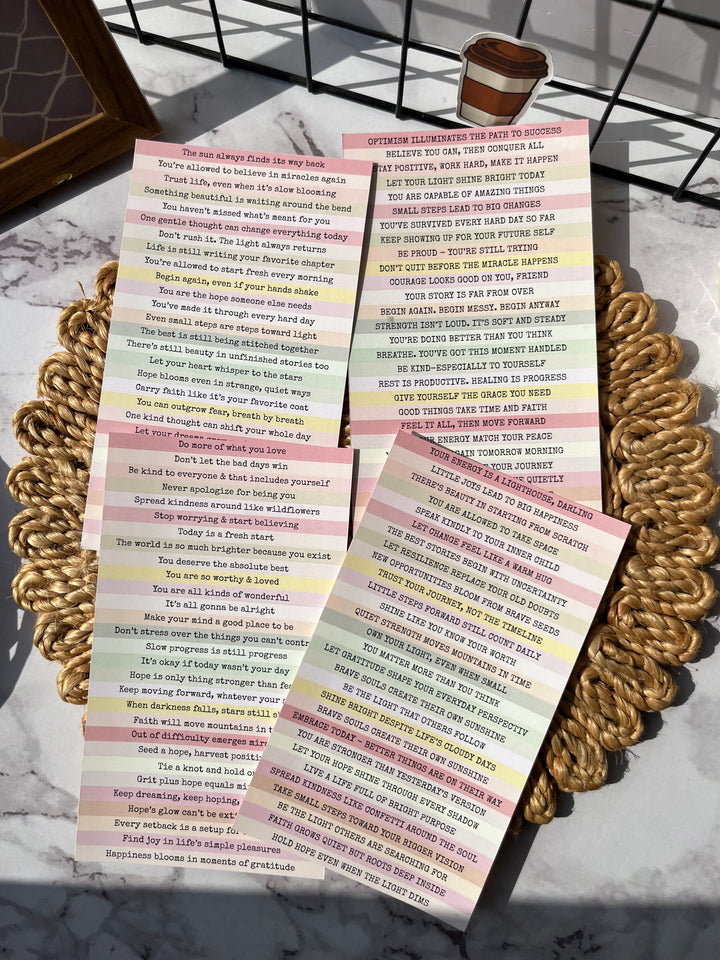 The sun always finds its way back
You're allowed to believe in miracles again
Trust life, even when it's slow blooming
Something beautiful is waiting around the bend
You haven't missed what's meant for you
One gentle thought can change everything today
Don't rush it. The light always returns
Life is still writing your favorite chapter
You're allowed to start fresh every morning
Begin again, even if your hands shake
You are the hope someone else needs
You've made it through every hard day
Even small steps are steps toward light
The best is still being stitched together
There's still beauty in unfinished stories too
Let your heart whisper to the stars
Hope blooms even in strange, quiet ways
Carry faith like it's your favorite coat
You can outgrow fear, breath by breath
One kind thought can shift your whole day
Let your dreams
OPTIMISM ILLUMINATES THE PATH TO SUCCESS
BELIEVE YOU CAN, THEN CONQUER ALL
STAY POSITIVE, WORK HARD, MAKE IT HAPPEN
LET YOUR LIGHT SHINE BRIGHT TODAY
YOU ARE CAPABLE OF AMAZING THINGS
SMALL STEPS LEAD TO BIG CHANGES
YOU'VE SURVIVED EVERY HARD DAY SO FAR
KEEP SHOWING UP FOR YOUR FUTURE SELF
BE PROUD – YOU'RE STILL TRYING
DON'T QUIT BEFORE THE MIRACLE HAPPENS
COURAGE LOOKS GOOD ON YOU, FRIEND
YOUR STORY IS FAR FROM OVER
BEGIN AGAIN. BEGIN MESSY. BEGIN ANYWAY
STRENGTH ISN'T LOUD. IT'S SOFT AND STEADY
YOU'RE DOING BETTER THAN YOU THINK
BREATHE. YOU'VE GOT THIS MOMENT HANDLED
BE KIND–ESPECIALLY TO YOURSELF
REST IS PRODUCTIVE. HEALING IS PROGRESS
GIVE YOURSELF THE GRACE YOU NEED
GOOD THINGS TAKE TIME AND FAITH
FEEL IT ALL, THEN MOVE FORWARD
YOUR ENERGY MATCH YOUR PEACE
AGAIN TOMORROW MORNING
YOUR JOURNEY
QUIETLY
Do more of what you love
Don't let the bad days win
Be kind to everyone & that includes yourself
Never apologize for being you
Spread kindness around like wildflowers
Stop worrying & start believing
Today is a fresh start
The world is so much brighter because you exist
You deserve the absolute best
You are so worthy & loved
You are all kinds of wonderful
It's all gonna be alright
Make your mind a good place to be
Don't stress over the things you can't contr
Slow progress is still progress
It's okay if today wasn't your day
Hope is only thing stronger than fe
Keep moving forward, whatever your s
When darkness falls, stars still sh
Faith will move mountains in t
Out of difficulty emerges mir
Seed a hope, harvest positi
Tie a knot and hold o
Grit plus hope equals mi
Keep dreaming, keep hoping,
Hope's glow can't be exti
Every setback is a setup fo
Find joy in life's simple pleasures
Happiness blooms in moments of gratitude
YOUR ENERGY IS A LIGHTHOUSE, DARLING
LITTLE JOYS LEAD TO BIG HAPPINESS
THERE'S BEAUTY IN STARTING FROM SCRATCH
YOU ARE ALLOWED TO TAKE SPACE
SPEAK KINDLY TO YOUR INNER CHILD
LET CHANGE FEEL LIKE A WARM HUG
THE BEST STORIES BEGIN WITH UNCERTAINTY
LET RESILIENCE REPLACE YOUR OLD DOUBTS
NEW OPPORTUNITIES BLOOM FROM BRAVE SEEDS
TRUST YOUR JOURNEY, NOT THE TIMELINE
LITTLE STEPS FORWARD STILL COUNT DAILY
SHINE LIKE YOU KNOW YOUR WORTH
QUIET STRENGTH MOVES MOUNTAINS IN TIME
OWN YOUR LIGHT, EVEN WHEN SMALL
YOU MATTER MORE THAN YOU THINK
LET GRATITUDE SHAPE YOUR EVERYDAY PERSPECTIV
BRAVE SOULS CREATE THEIR OWN SUNSHINE
BE THE LIGHT THAT OTHERS FOLLOW
SHINE BRIGHT DESPITE LIFE'S CLOUDY DAYS
BRAVE SOULS CREATE THEIR OWN SUNSHINE
EMBRACE TODAY – BETTER THINGS ARE ON THEIR WAY
YOU ARE STRONGER THAN YESTERDAY'S VERSION
LET YOUR HOPE SHINE THROUGH EVERY SHADOW
LIVE A LIFE FULL OF BRIGHT PURPOSE
SPREAD KINDNESS LIKE CONFETTI AROUND THE SOUL
TAKE SMALL STEPS TOWARD YOUR BIGGER VISION
BE THE LIGHT OTHERS ARE SEARCHING FOR
FAITH GROWS QUIET BUT ROOTS DEEP INSIDE
HOLD HOPE EVEN WHEN THE LIGHT DIMS